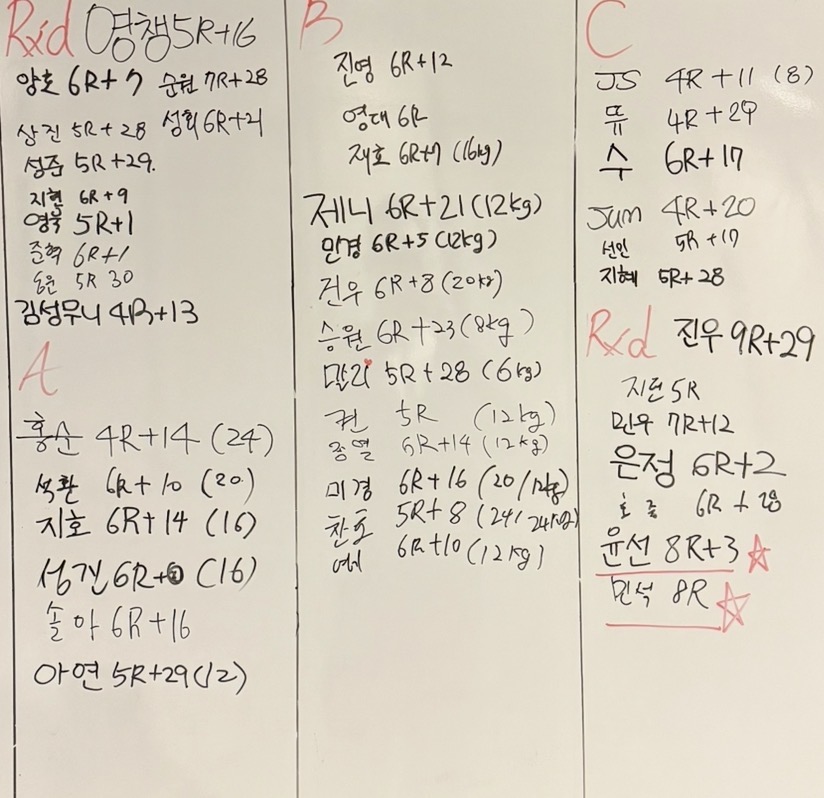 Rxd 영챙 5R+16
양호 6R+7 순원 7R+28
상진 5R+28 성회 6R+21
성준 5R+29.
지현 6R+9
영북 5R+1
준혁 6R+1
동운 5R 30
김성무니 4R+13
A
홍순 4R+14 (24)
석환 6R+10 (20)
지호 6R+14 (16)
성진 6R+ (16)
솔아 6R+16
아연 5R+29 (12)
B
진영 6R+12
영대 6R
재호 6R+7 (16kg)
제니 6R+21 (12kg)
민경 6R+5 (12kg)
건우 6R+8 (20kg)
승원 6R+23 (8kg)
말리 5R+28 (6kg)
퀸 5R (12kg)
종열 6R+14 (12kg)
미경 6R+16 (20/12kg)
찬호 5R+8 (24/24kg)
예 6R+10 (12kg)
C
JS 4R+11 (8)
뜌 4R+29
수 6R+17
Jun 4R+20
선인 5R+17
지혜 5R+28
Rxd 진우 9R+29
지돈 5R
민우 7R+12
은정 6R+2
호준 6R+28
윤선 8R+3
민석 8R